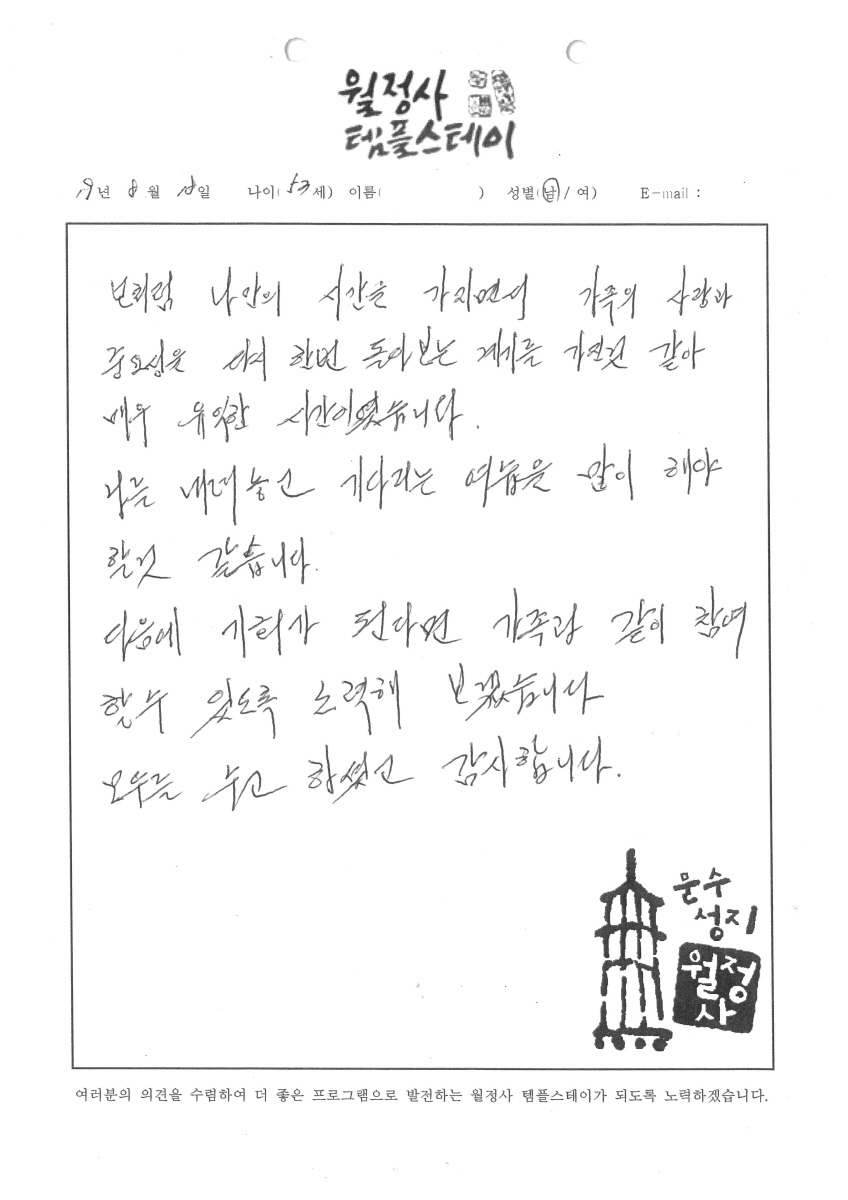 월정사
템플스테이
19년 8월 18일 나이(53세) 이름( ) 성별(남/여) E-mail :
모처럼 나만의 시간을 가지면서 가족의 사랑과
중요성을 다시 한번 돌아보는 계기를 가진것 같아
매우 유익한 시간이였습니다.
나를 내려놓고 기다리는 연습을 많이 해야
할것 같습니다.
다음에 기회가 된다면 가족과 같이 참여
할수 있도록 노력해 보겠습니다
모두들 수고 하셨고 감사합니다.
문수
성지
월정
사
여러분의 의견을 수렴하여 더 좋은 프로그램으로 발전하는 월정사 템플스테이가 되도록 노력하겠습니다.